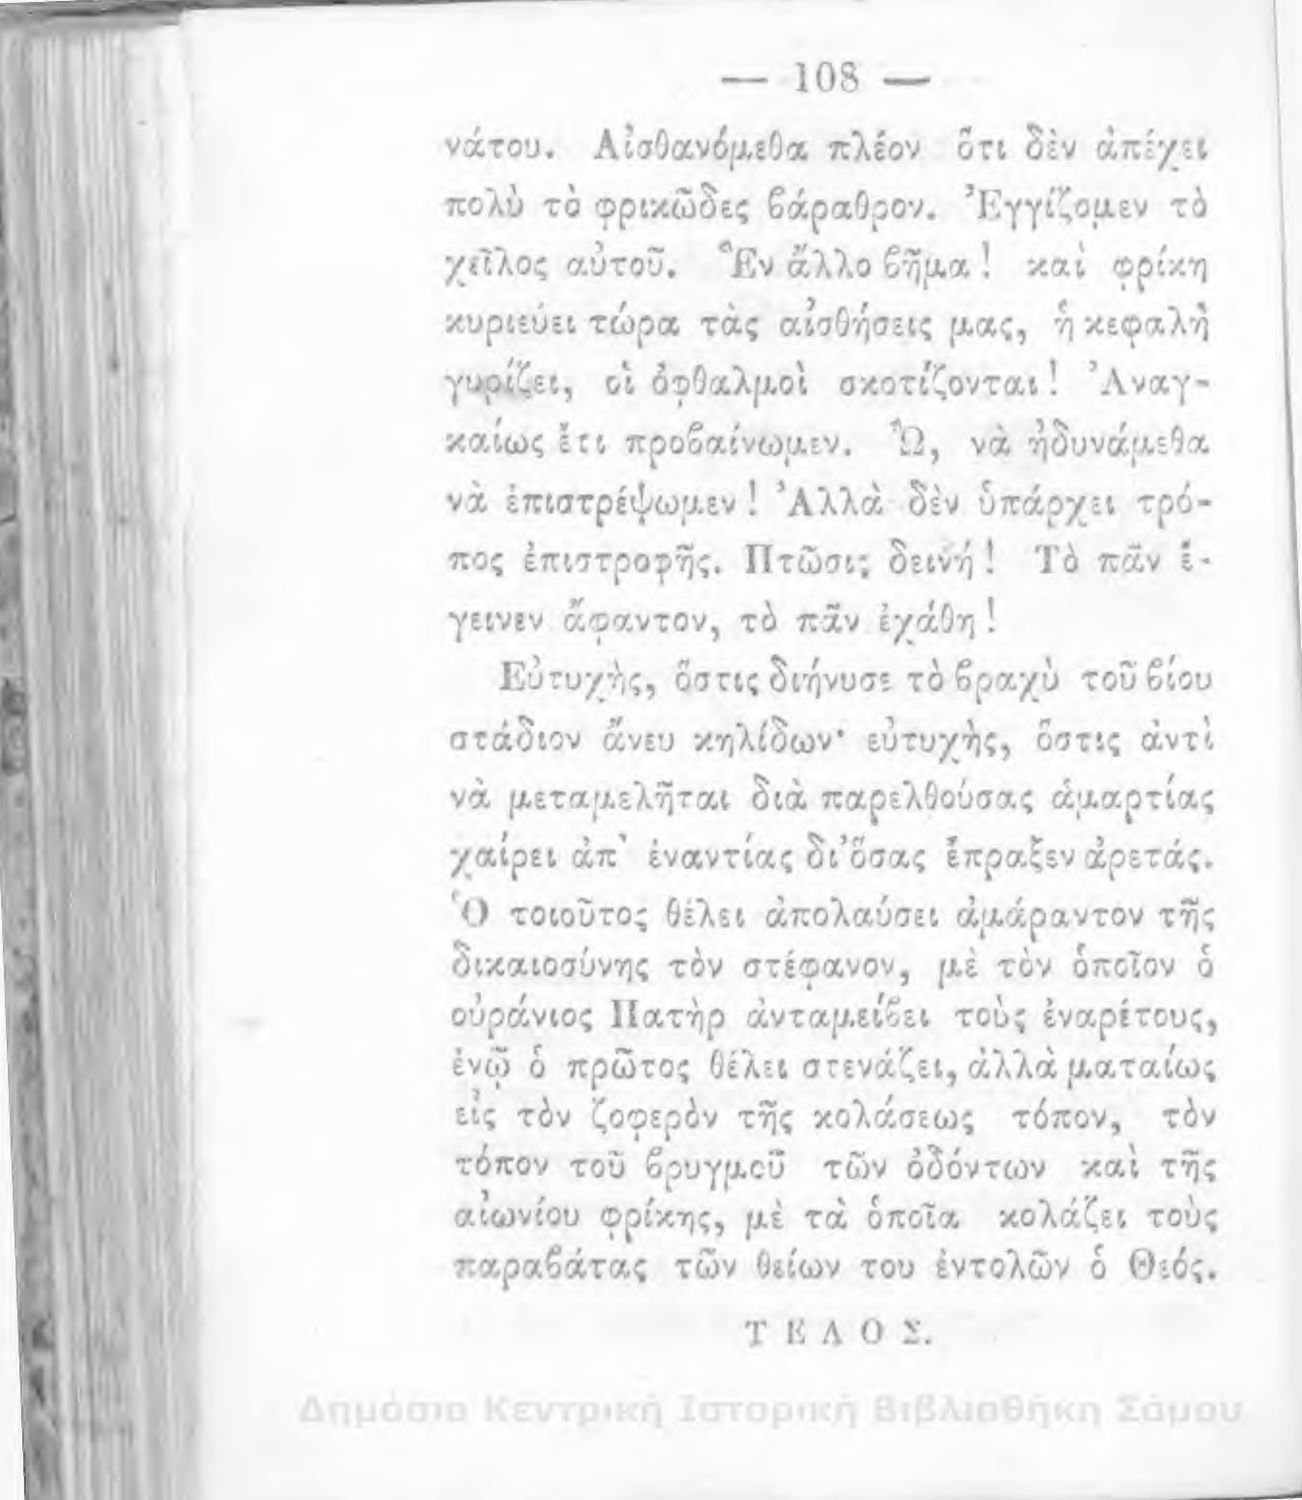 — 108 —
νάτου. Αἰσθανόμεθα πλέον ὅτι δὲν ἀπέχει
πολὺ τὸ φρικῶδες βάραθρον. Ἐγγίζομεν τὸ
χεῖλος αὐτοῦ. Ἓν ἄλλο βῆμα! καὶ φρίκη
κυριεύει τώρα τὰς αἰσθήσεις μας, ἡ κεφαλὴ
γυρίζει, οἱ ὀφθαλμοὶ σκοτίζονται! Ἀναγ-
καίως ἔτι προβαίνωμεν. Ὢ, νὰ ἠδυνάμεθα
νὰ ἐπιστρέψωμεν! Ἀλλὰ δὲν ὑπάρχει τρό-
πος ἐπιστροφῆς. Πτῶσις δεινή! Τὸ πᾶν ἔ-
γεινεν ἄφαντον, τὸ πᾶν ἐχάθη!
Εὐτυχὴς, ὅστις διήνυσε τὸ βραχὺ τοῦ βίου
στάδιον ἄνευ κηλίδων· εὐτυχὴς, ὅστις ἀντὶ
νὰ μεταμελῆται διὰ παρελθούσας ἁμαρτίας
χαίρει ἀπ' ἐναντίας δι' ὅσας ἔπραξεν ἀρετάς.
Ὁ τοιοῦτος θέλει ἀπολαύσει ἀμάραντον τῆς
δικαιοσύνης τὸν στέφανον, μὲ τὸν ὁποῖον ὁ
οὐράνιος Πατὴρ ἀνταμείβει τοὺς ἐναρέτους,
ἐνῷ ὁ πρῶτος θέλει στενάζει, ἀλλὰ ματαίως
εἰς τὸν ζοφερὸν τῆς κολάσεως τόπον, τὸν
τόπον τοῦ βρυγμοῦ τῶν ὀδόντων καὶ τῆς
αἰωνίου φρίκης, μὲ τὰ ὁποῖα κολάζει τοὺς
παραβάτας τῶν θείων του ἐντολῶν ὁ Θεός.
ΤΕΛΟΣ.
Δημόσια Κεντρική Ιστορική Βιβλιοθήκη Σάμου